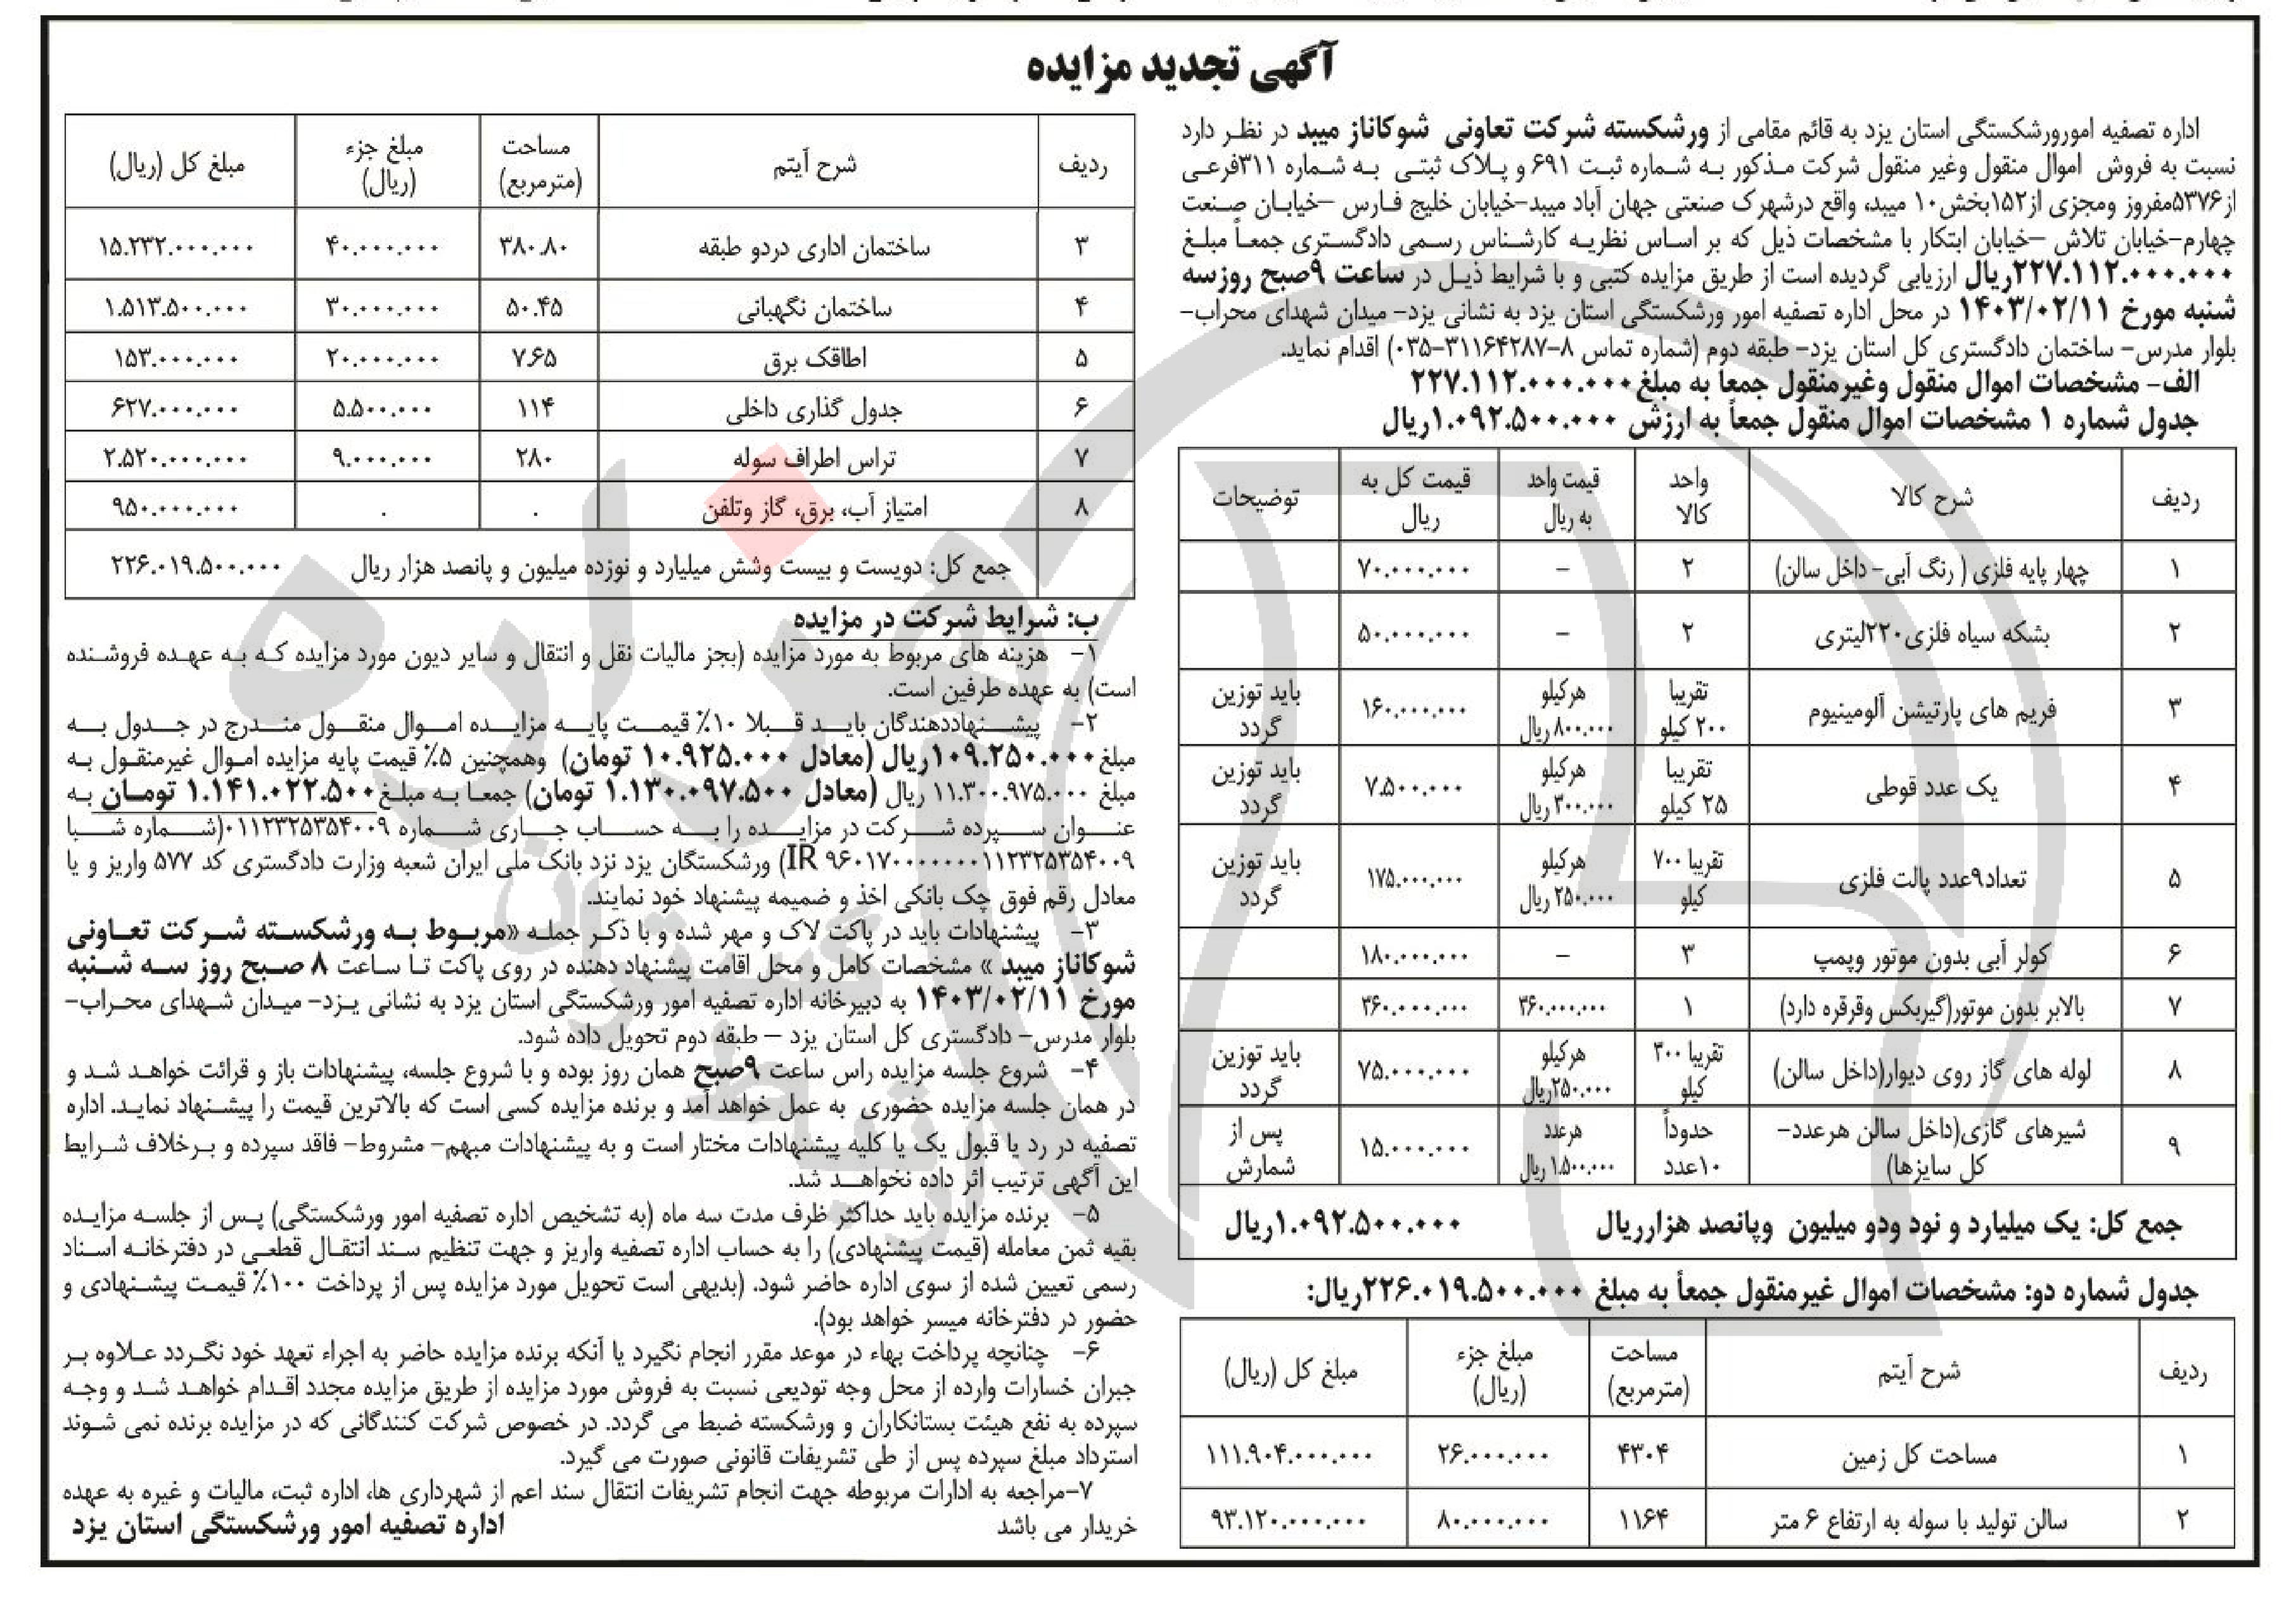 آگهی تجدید مزایده
اداره تصفیه امورورشکستگی استان یزد به قائم مقامی از ورشکسته شرکت تعاونی شوکاناز میبد در نظر دارد
نسبت به فروش اموال منقول وغیر منقول شرکت مذکور به شماره ثبت ۶۹۱ و پلاک ثبتی به شماره ۳۱۱فرعی
از۵۳۷۶مفروز ومجزی از۱۵۲بخش۱۰ میبد، واقع درشهرک صنعتی جهان آباد میبد-خیابان خلیج فارس –خیابان صنعت
چهارم-خیابان تلاش –خیابان ابتکار با مشخصات ذیل که بر اساس نظریه کارشناس رسمی دادگستری جمعاً مبلغ
۲۲۷.۱۱۲.۰۰۰.۰۰۰ریال ارزیابی گردیده است از طریق مزایده کتبی و با شرایط ذیل در ساعت ۹صبح روزسه
شنبه مورخ ۱۴۰۳/۰۲/۱۱ در محل اداره تصفیه امور ورشکستگی استان یزد به نشانی یزد- میدان شهدای محراب-
بلوار مدرس- ساختمان دادگستری کل استان یزد- طبقه دوم (شماره تماس ۸-۳۱۱۶۴۲۸۷-۰۳۵) اقدام نماید.
الف- مشخصات اموال منقول وغیرمنقول جمعاً به مبلغ ۲۲۷.۱۱۲.۰۰۰.۰۰۰
جدول شماره ۱ مشخصات اموال منقول جمعاً به ارزش ۱.۰۹۲.۵۰۰.۰۰۰ریال
ردیف شرح کالا واحد کالا قیمت واحد به ریال قیمت کل به ریال توضیحات
۱ چهار پایه فلزی ( رنگ آبی- داخل سالن) ۲ – ۷۰.۰۰۰.۰۰۰
۲ بشکه سیاه فلزی۲۲۰لیتری ۲ – ۵۰.۰۰۰.۰۰۰
۳ فریم های پارتیشن آلومینیوم تقریبا ۲۰۰ کیلو هرکیلو ۸۰۰.۰۰۰ ریال ۱۶۰.۰۰۰.۰۰۰ باید توزین گردد
۴ یک عدد قوطی تقریبا ۲۵ کیلو هرکیلو ۳۰۰.۰۰۰ ریال ۷.۵۰۰.۰۰۰ باید توزین گردد
۵ تعداد۹عدد پالت فلزی تقریبا ۷۰۰ کیلو هرکیلو ۲۵۰.۰۰۰ ریال ۱۷۵.۰۰۰.۰۰۰ باید توزین گردد
۶ کولر آبی بدون موتور وپمپ ۳ – ۱۸۰.۰۰۰.۰۰۰
۷ بالابر بدون موتور(گیربکس وقرقره دارد) ۱ ۳۶۰.۰۰۰.۰۰۰ ۳۶۰.۰۰۰.۰۰۰
۸ لوله های گاز روی دیوار(داخل سالن) تقریبا ۳۰۰ کیلو هرکیلو ۲۵۰.۰۰۰ریال ۷۵.۰۰۰.۰۰۰ باید توزین گردد
۹ شیرهای گازی(داخل سالن هرعدد- کل سایزها) حدوداً ۱۰عدد هرعدد ۱.۵۰۰.۰۰۰ ریال ۱۵.۰۰۰.۰۰۰ پس از شمارش
جمع کل: یک میلیارد و نود ودو میلیون وپانصد هزارریال ۱.۰۹۲.۵۰۰.۰۰۰ریال
جدول شماره دو: مشخصات اموال غیرمنقول جمعاً به مبلغ ۲۲۶.۰۱۹.۵۰۰.۰۰۰ریال:
ردیف شرح آیتم مساحت (مترمربع) مبلغ جزء (ریال) مبلغ کل (ریال)
۱ مساحت کل زمین ۴۳۰۴ ۲۶.۰۰۰.۰۰۰ ۱۱۱.۹۰۴.۰۰۰.۰۰۰
۲ سالن تولید با سوله به ارتفاع ۶ متر ۱۱۶۴ ۸۰.۰۰۰.۰۰۰ ۹۳.۱۲۰.۰۰۰.۰۰۰
ردیف شرح آیتم مساحت (مترمربع) مبلغ جزء (ریال) مبلغ کل (ریال)
۳ ساختمان اداری دردو طبقه ۳۸۰.۸۰ ۴۰.۰۰۰.۰۰۰ ۱۵.۲۳۲.۰۰۰.۰۰۰
۴ ساختمان نگهبانی ۵۰.۴۵ ۳۰.۰۰۰.۰۰۰ ۱.۵۱۳.۵۰۰.۰۰۰
۵ اطاقک برق ۷.۶۵ ۲۰.۰۰۰.۰۰۰ ۱۵۳.۰۰۰.۰۰۰
۶ جدول گذاری داخلی ۱۱۴ ۵.۵۰۰.۰۰۰ ۶۲۷.۰۰۰.۰۰۰
۷ تراس اطراف سوله ۲۸۰ ۹.۰۰۰.۰۰۰ ۲.۵۲۰.۰۰۰.۰۰۰
۸ امتیاز آب، برق، گاز وتلفن . . ۹۵۰.۰۰۰.۰۰۰
جمع کل: دویست و بیست وشش میلیارد و نوزده میلیون و پانصد هزار ریال ۲۲۶.۰۱۹.۵۰۰.۰۰۰
ب: شرایط شرکت در مزایده
۱- هزینه های مربوط به مورد مزایده (بجز مالیات نقل و انتقال و سایر دیون مورد مزایده که به عهده فروشنده
است) به عهده طرفین است.
۲- پیشنهاددهندگان باید قبلا ۱۰٪ قیمت پایه مزایده اموال منقول مندرج در جدول به
مبلغ ۱۰۹.۲۵۰.۰۰۰ریال (معادل ۱۰.۹۲۵.۰۰۰ تومان) وهمچنین ۵٪ قیمت پایه مزایده اموال غیرمنقول به
مبلغ ۱۱.۳۰۰.۹۷۵.۰۰۰ ریال (معادل ۱.۱۳۰.۰۹۷.۵۰۰ تومان) جمعا به مبلغ ۱.۱۴۱.۰۲۲.۵۰۰ تومان به
عنوان سپرده شرکت در مزایده را به حساب جاری شماره ۰۱۱۲۳۲۵۳۵۴۰۰۹(شماره شبا
IR ۹۶۰۱۷۰۰۰۰۰۰۰۱۱۲۳۲۵۳۵۴۰۰۹) ورشکستگان یزد نزد بانک ملی ایران شعبه وزارت دادگستری کد ۵۷۷ واریز و یا
معادل رقم فوق چک بانکی اخذ و ضمیمه پیشنهاد خود نمایند.
۳- پیشنهادات باید در پاکت لاک و مهر شده و با ذکر جمله «مربوط به ورشکسته شرکت تعاونی
شوکاناز میبد » مشخصات کامل و محل اقامت پیشنهاد دهنده در روی پاکت تا ساعت ۸ صبح روز سه شنبه
مورخ ۱۴۰۳/۰۲/۱۱ به دبیرخانه اداره تصفیه امور ورشکستگی استان یزد به نشانی یزد- میدان شهدای محراب-
بلوار مدرس- دادگستری کل استان یزد – طبقه دوم تحویل داده شود.
۴- شروع جلسه مزایده راس ساعت ۹صبح همان روز بوده و با شروع جلسه، پیشنهادات باز و قرائت خواهد شد و
در همان جلسه مزایده حضوری به عمل خواهد آمد و برنده مزایده کسی است که بالاترین قیمت را پیشنهاد نماید. اداره
تصفیه در رد یا قبول یک یا کلیه پیشنهادات مختار است و به پیشنهادات مبهم- مشروط- فاقد سپرده و برخلاف شرایط
این آگهی ترتیب اثر داده نخواهد شد.
۵- برنده مزایده باید حداکثر ظرف مدت سه ماه (به تشخیص اداره تصفیه امور ورشکستگی) پس از جلسه مزایده
بقیه ثمن معامله (قیمت پیشنهادی) را به حساب اداره تصفیه واریز و جهت تنظیم سند انتقال قطعی در دفترخانه اسناد
رسمی تعیین شده از سوی اداره حاضر شود. (بدیهی است تحویل مورد مزایده پس از پرداخت ۱۰۰٪ قیمت پیشنهادی و
حضور در دفترخانه میسر خواهد بود).
۶- چنانچه پرداخت بهاء در موعد مقرر انجام نگیرد یا آنکه برنده مزایده حاضر به اجراء تعهد خود نگردد علاوه بر
جبران خسارات وارده از محل وجه تودیعی نسبت به فروش مورد مزایده از طریق مزایده مجدد اقدام خواهد شد و وجه
سپرده به نفع هیئت بستانکاران و ورشکسته ضبط می گردد. در خصوص شرکت کنندگانی که در مزایده برنده نمی شوند
استرداد مبلغ سپرده پس از طی تشریفات قانونی صورت می گیرد.
۷-مراجعه به ادارات مربوطه جهت انجام تشریفات انتقال سند اعم از شهرداری ها، اداره ثبت، مالیات و غیره به عهده
خریدار می باشد
اداره تصفیه امور ورشکستگی استان یزد